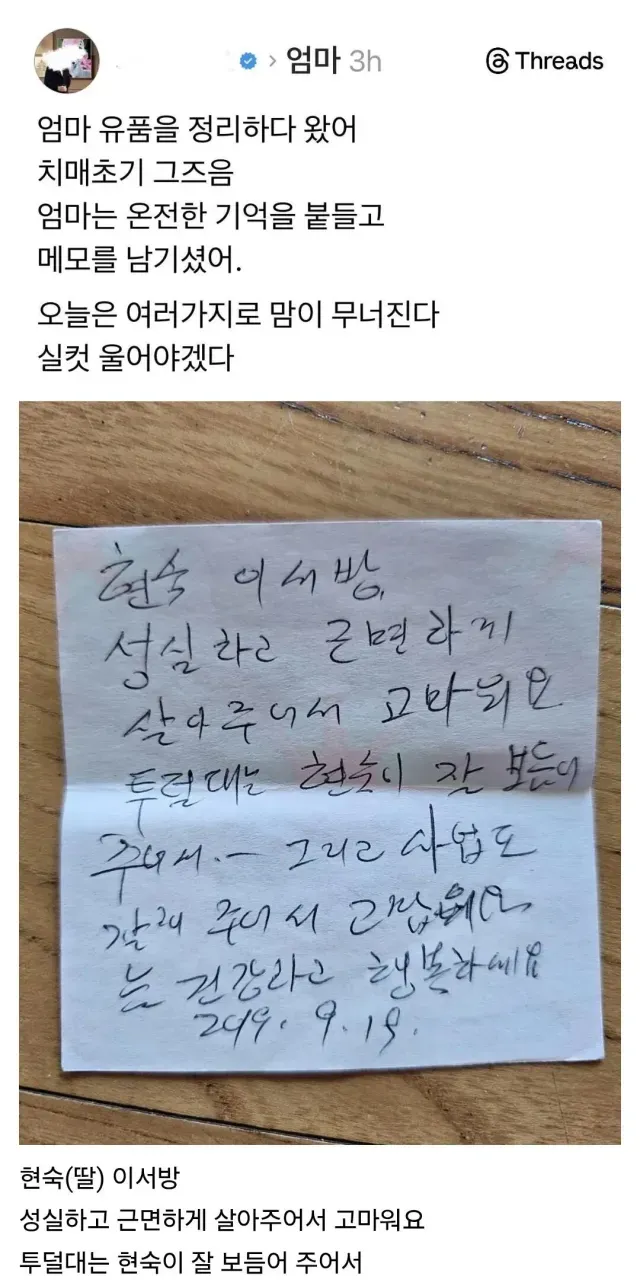 엄마 3h
Threads
엄마 유품을 정리하다 왔어
치매초기 그즈음
엄마는 온전한 기억을 붙들고
메모를 남기셨어.
오늘은 여러가지로 맘이 무너진다
실컷 울어야겠다
현숙 이서방.
성실하고 근면하게
살아주어서 고마워요
투덜대는 현숙이 잘 보듬어
주어서.ㅡ 그리고 사업도
잘해 주어서 고맙
는 건강하고 행복하세요
2019. 9. 19.
현숙(딸) 이서방
성실하고 근면하게 살아주어서 고마워요
투덜대는 현숙이 잘 보듬어 주어서